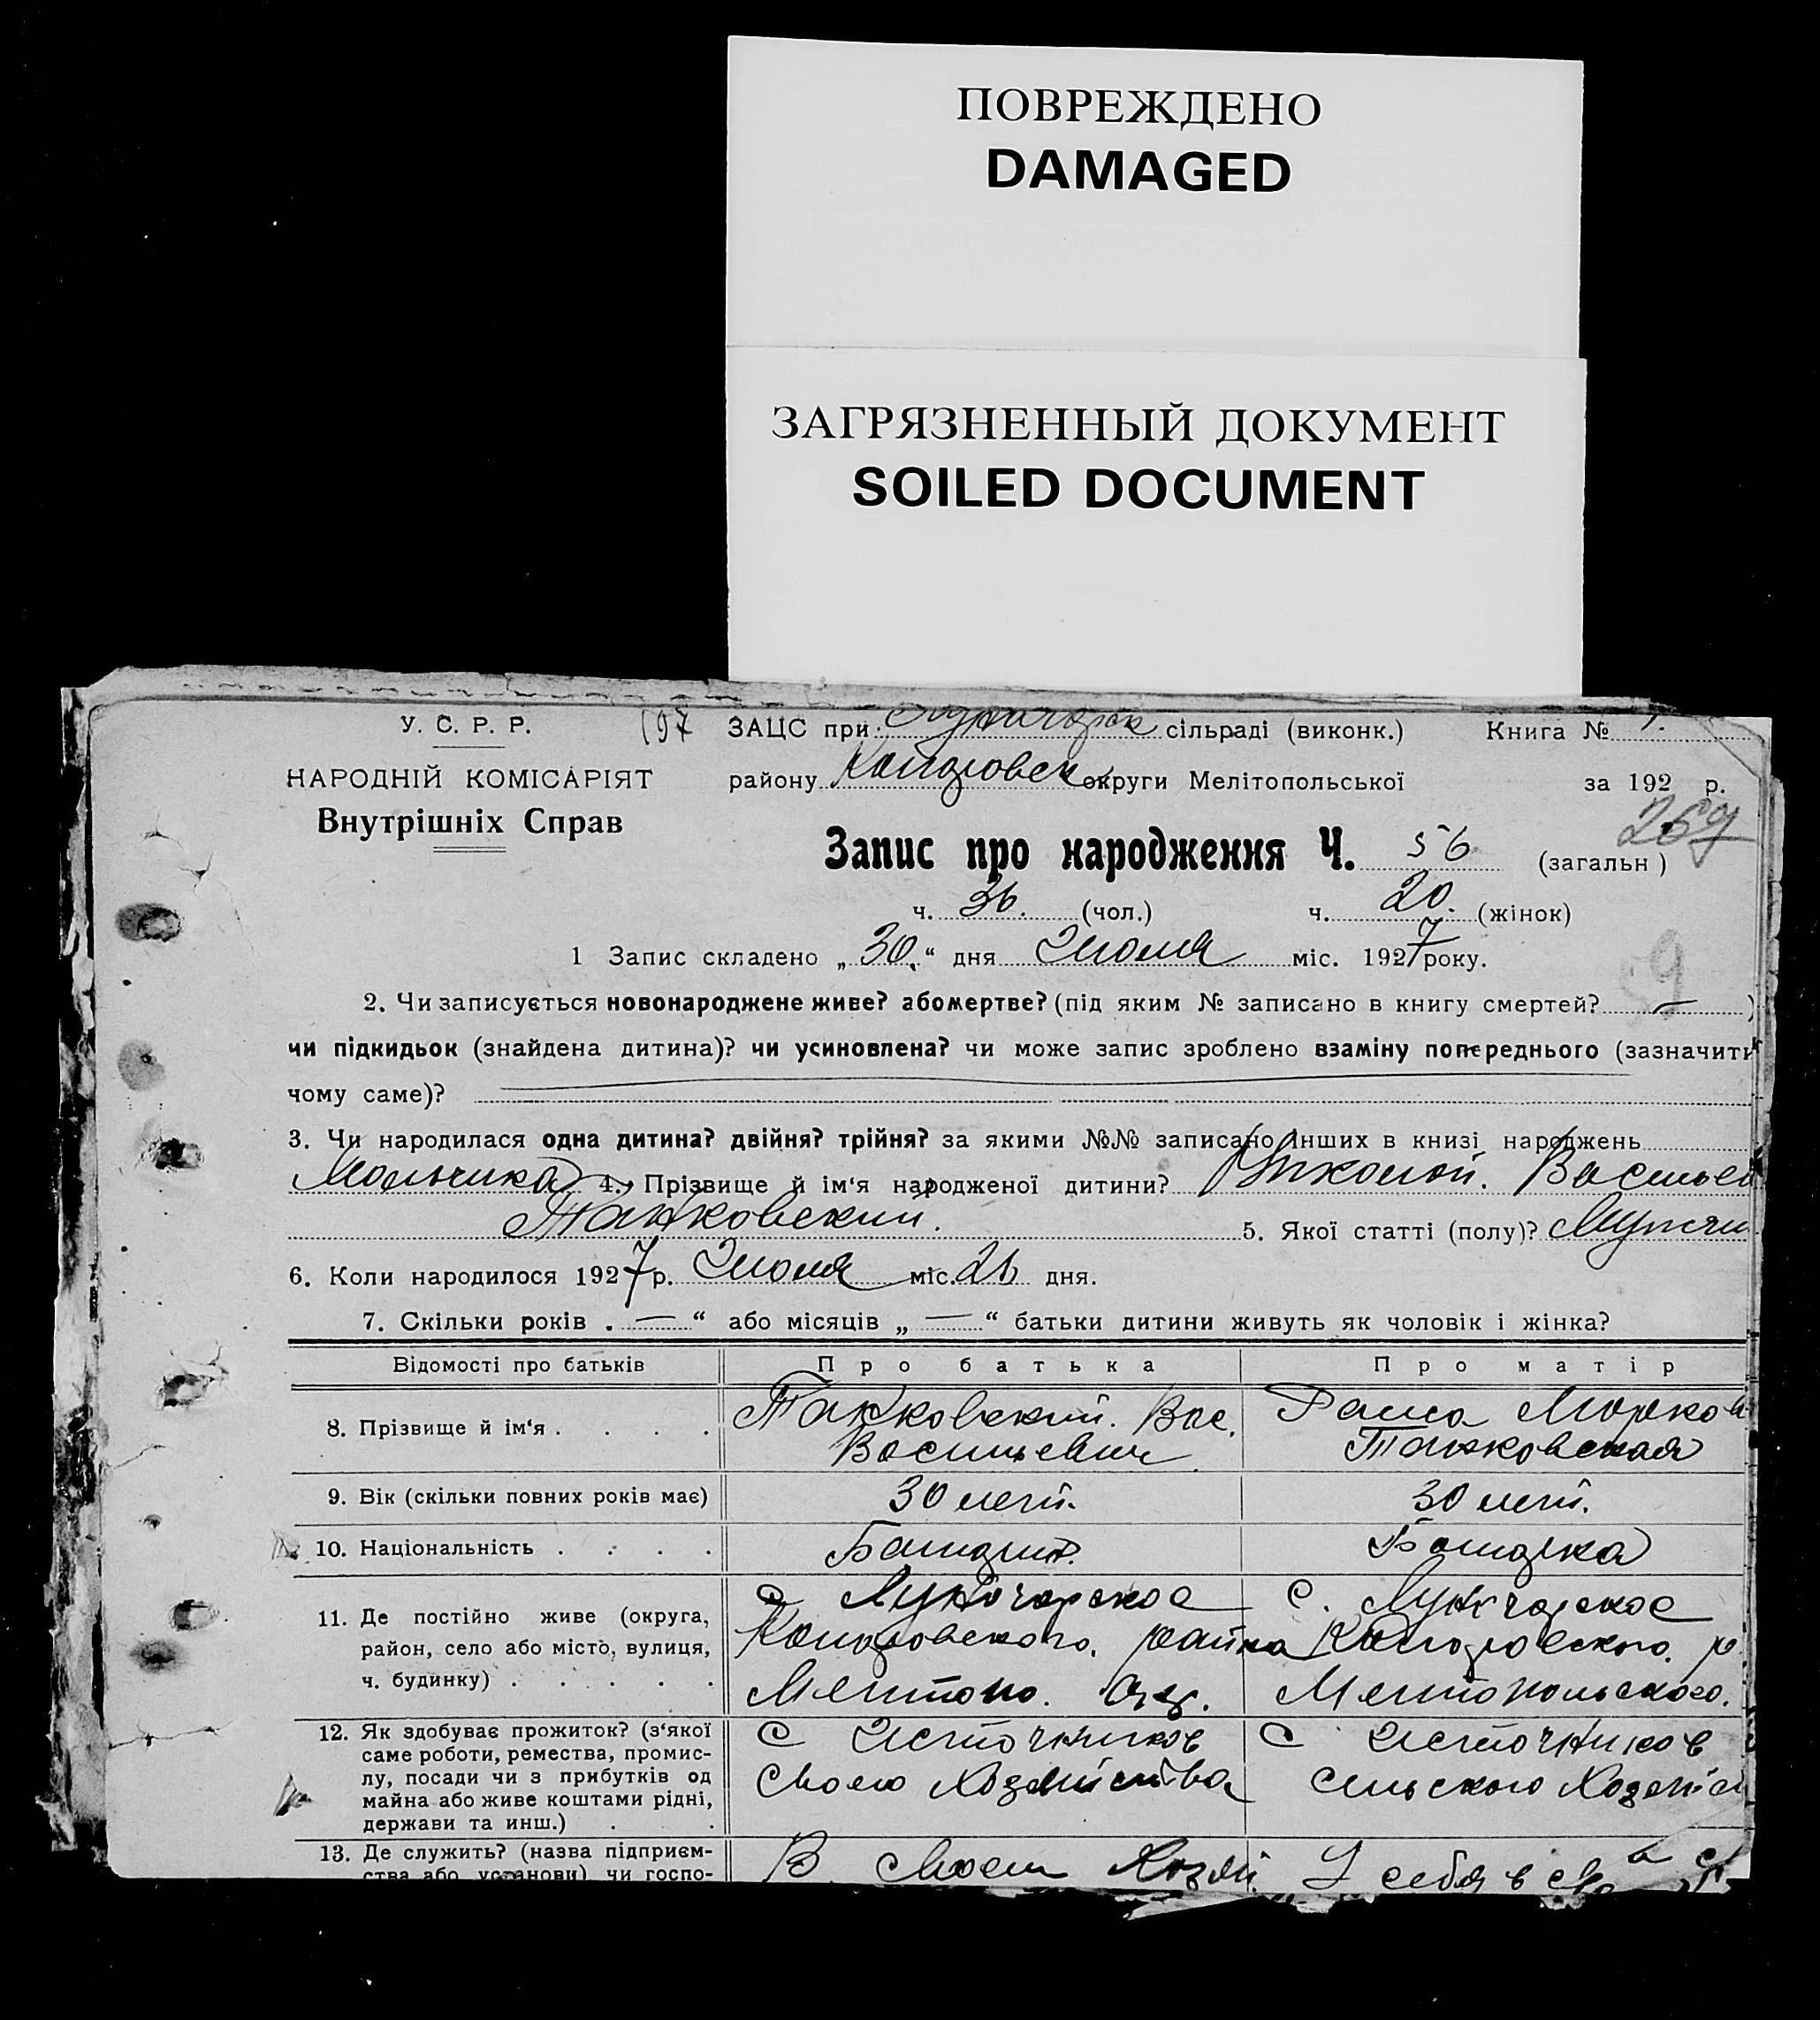 ПОВРЕЖДЕНО
DAMAGED
ЗАГРЯЗНЕННЫЙ ДОКУМЕНТ
SOILED DOCUMENT
У. С. Р. Р. 197 ЗАЦС при сільраді (виконк.) Книга № 1.
НАРОДНІЙ КОМІСАРІЯТ району округи Мелітопольської за 192 р.
Внутрішніх Справ 269
Запис про народження Ч. 56 (загальн)
ч. 36. (чол.) ч. 20. (жінок)
1 Запис складено „30.“ дня Июля міс. 1927 року.
59
2. Чи записується новонароджене живе? або мертве? (під яким № записано в книгу смертей? — )
чи підкидьок (знайдена дитина)? чи усиновлена? чи може запис зроблено взаміну попереднього (зазначити
чому саме)?
3. Чи народилася одна дитина? двійня? трійня? за якими №№ записано інших в книзі народжень
Мальчика 4. Прізвище й ім‘я народженої дитини? Николай. Васильев
Танковский. 5. Якої статті (полу)? Мужск
6. Коли народилося 1927 р. Июля міс. 26 дня.
7. Скільки років „ — “ або місяців „ — “ батьки дитини живуть як чоловік і жінка?
Відомості про батьків Про батька Про матір
8. Прізвище й ім‘я . . . . Танковский. Вас. Раиса Марков
Васильевич Танковская
9. Вік (скільки повних років має) 30 лет. 30 лет.
10. Національність . . . . Болгарка
11. Де постійно живе (округа, с. Луначарское с. Луначарское
район, село або місто, вулиця, района р.
ч. будинку) . . . . . Мелитопо. Окр. Мелитопольского.
12. Як здобуває прожиток? (з‘якої С Источников С Источников
саме роботи, ремества, промис-
лу, посади чи з прибутків од своего Хозяйства сельского Хозяйс
майна або живе коштами рідні,
держави та инш.) . .
13. Де служить? (назва підприєм- В своем Хозяй. У себя в
ства або установи) чи госпо-